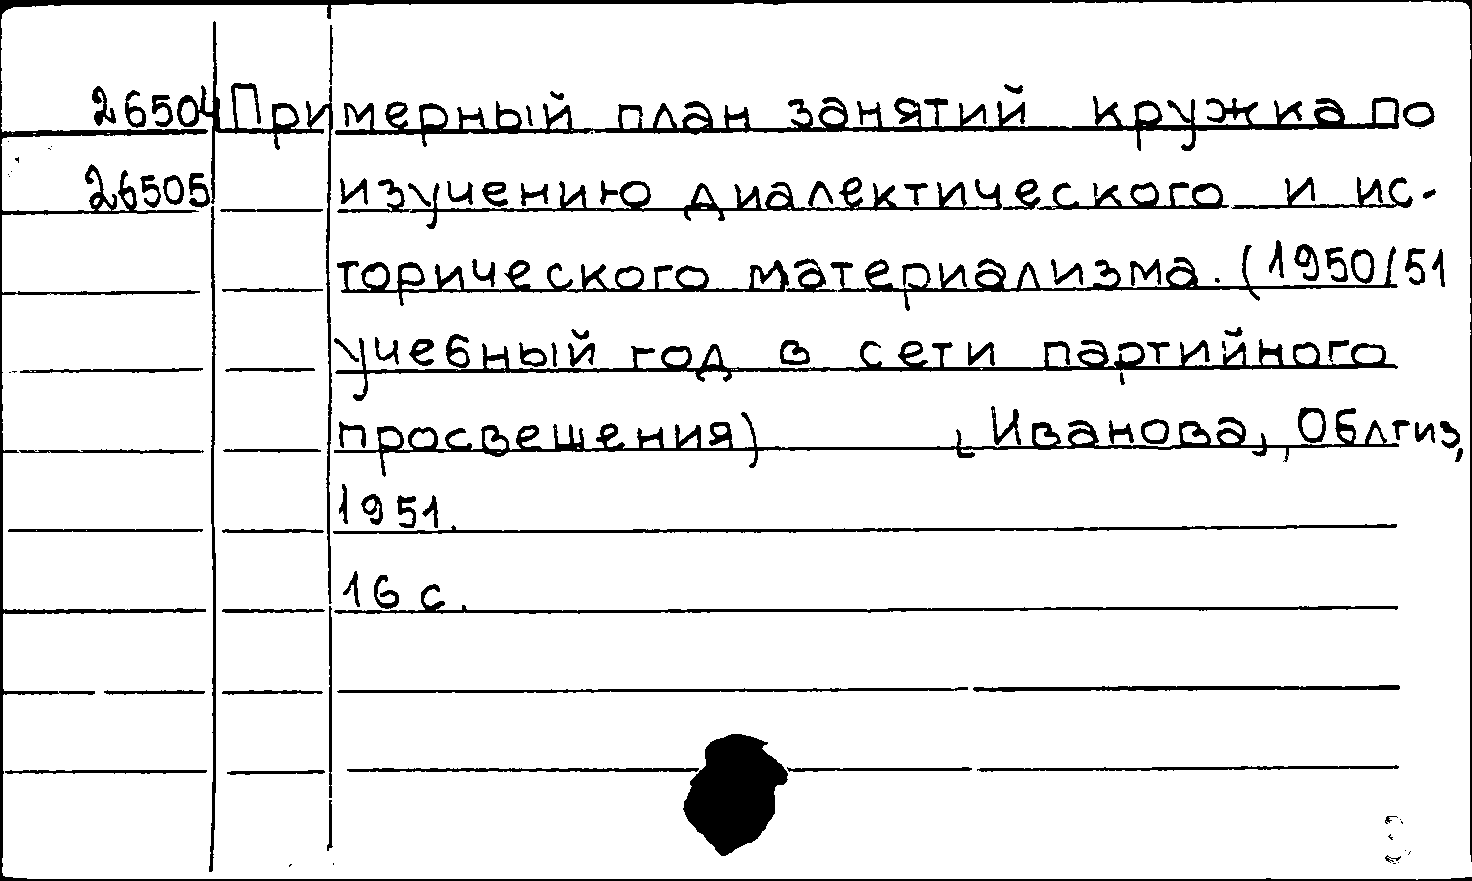 26504 Примерный план занятий кружка по
26505 изучению диалектического и ис-
торического материализма. (1950/51
учебный год в сети партийного
просвещения) [Иванова], Облгиз,
1951.
16 с.